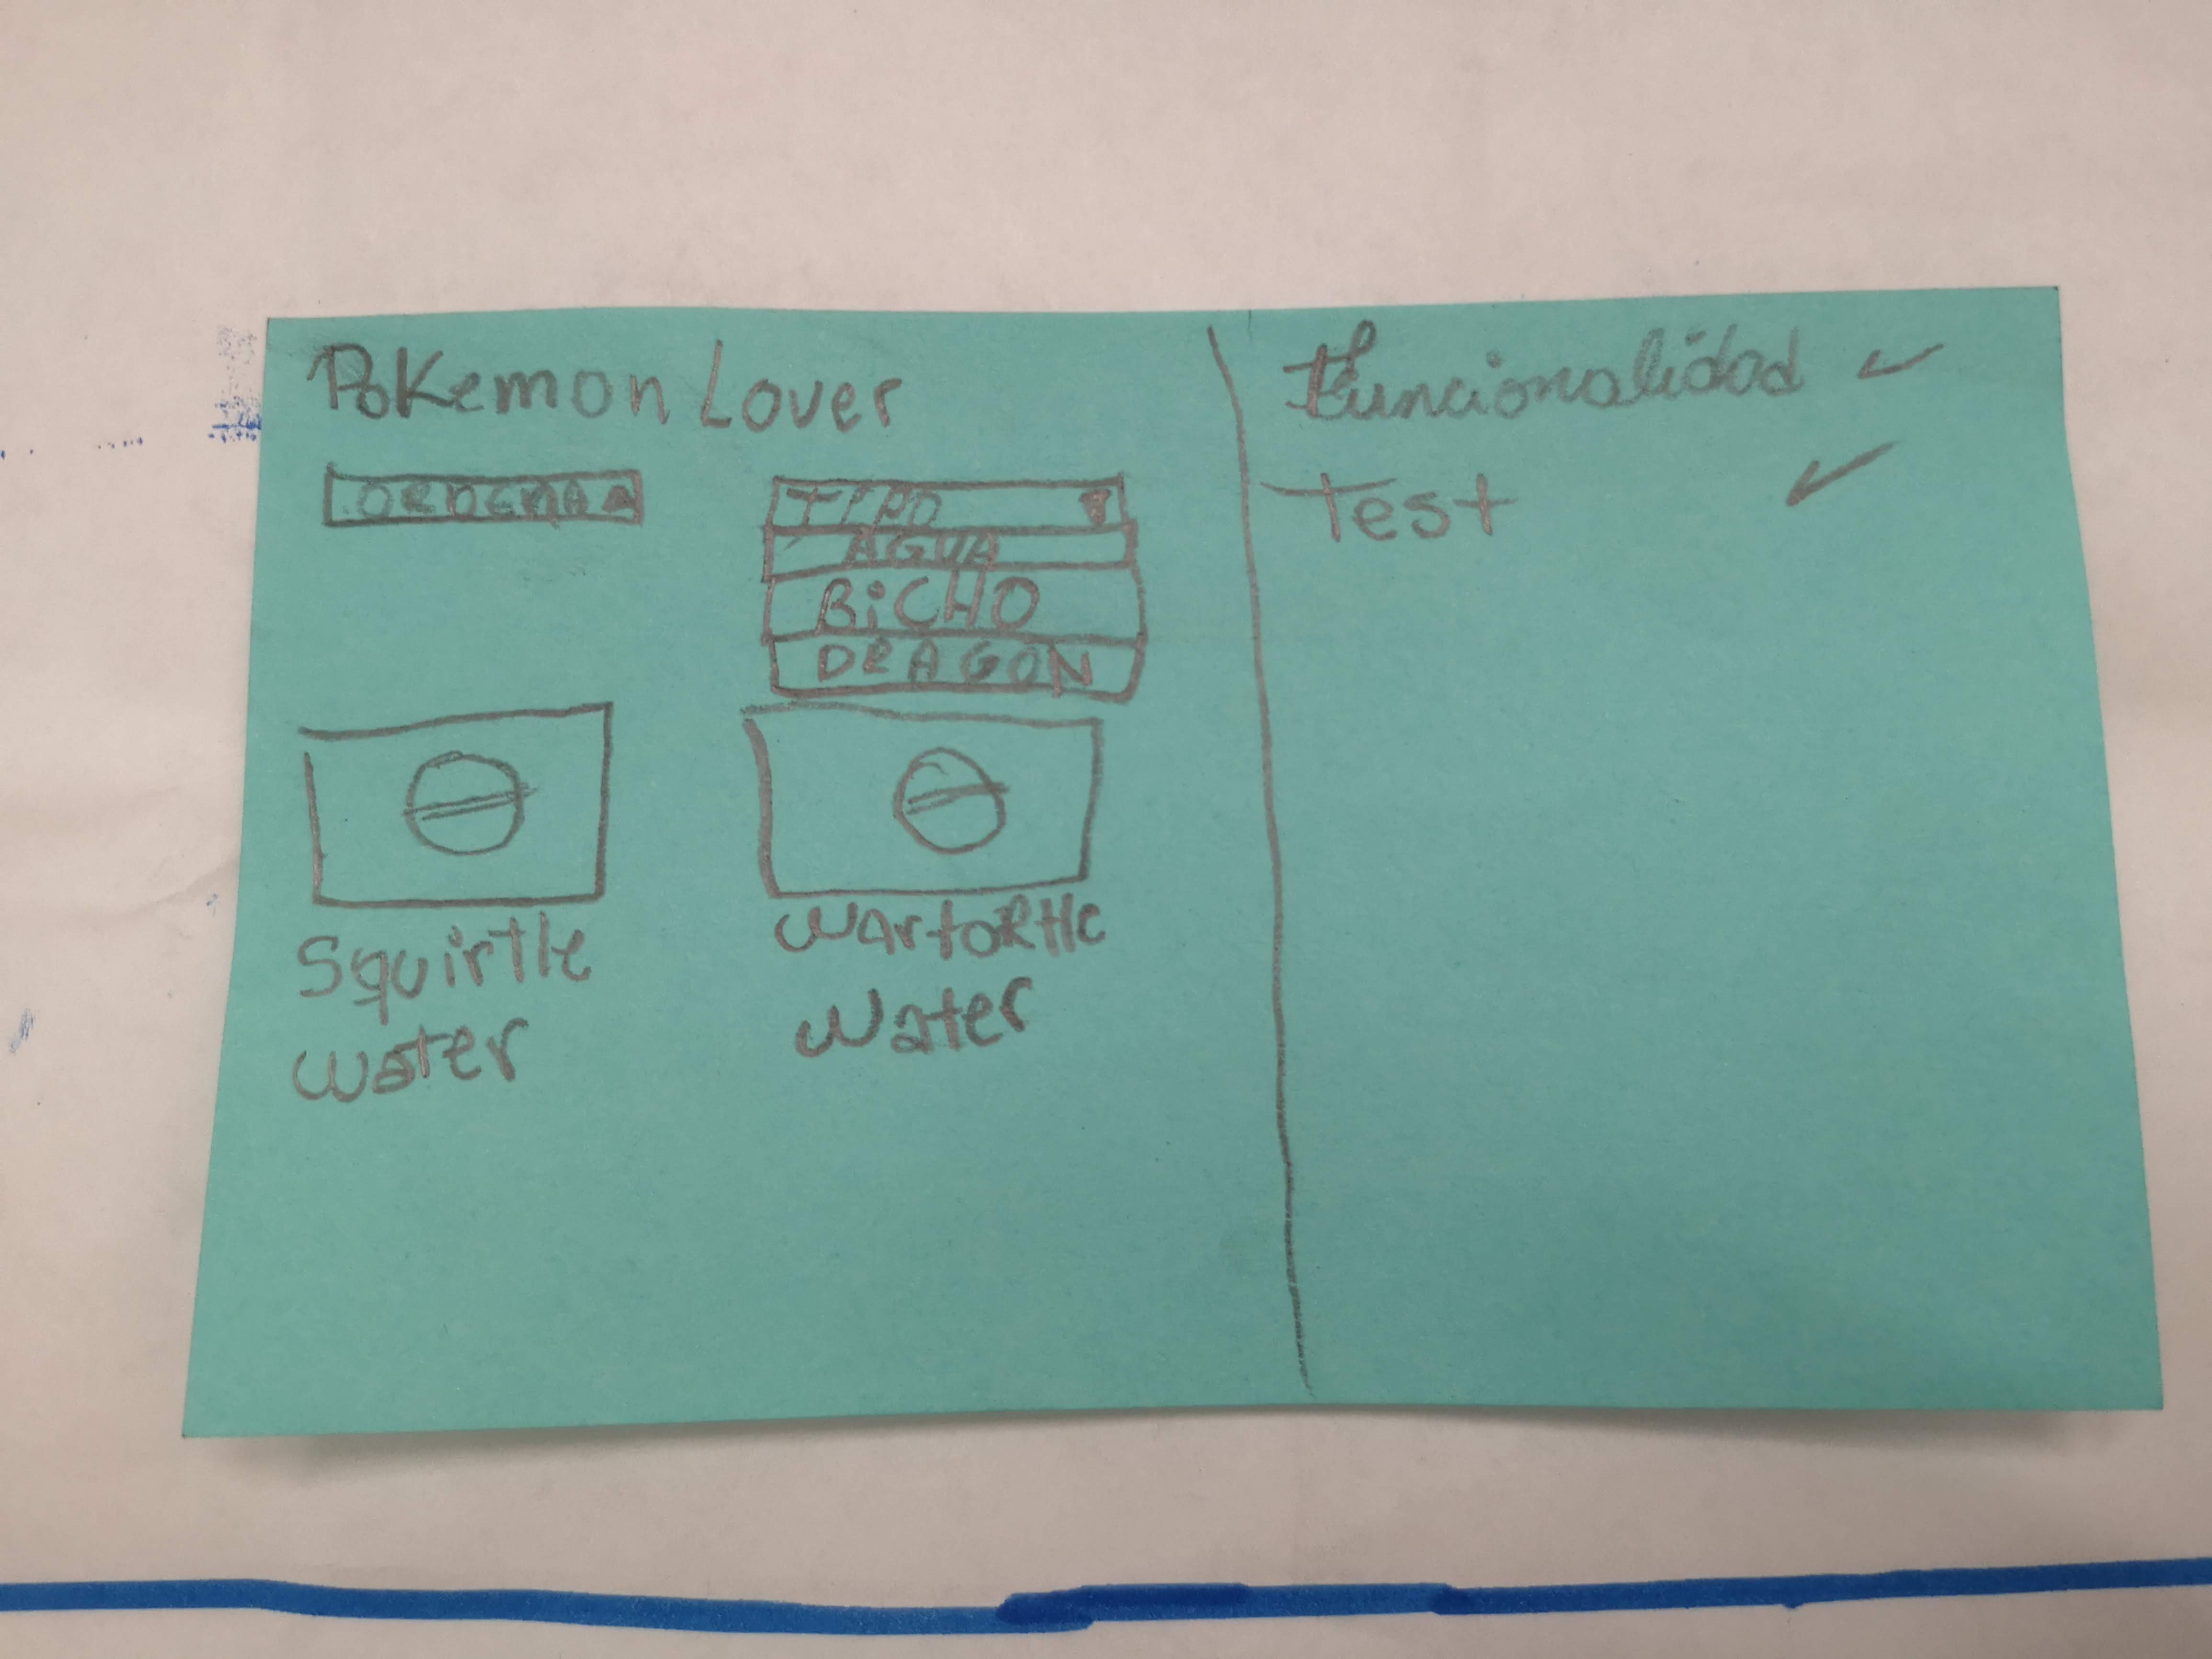 Pokemon Lover
ORDENAR
TIPO
AGUA
BiCHO
DRAGON
Squirtle
water
wartortle
water
Funcionalidad ✓
Test ✓